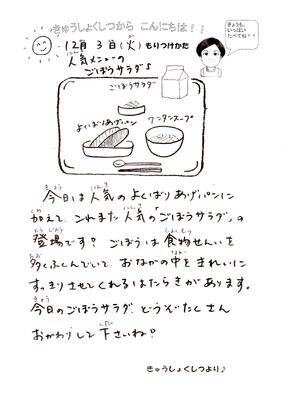 きゅうしょくしつから こんにちは！！
きょうも、
いっぱい
たべてね！！
12月 3日(火) もりつけかた
人気メニューの
ごぼうサラダ♪
ごぼうサラダ
よくばりあげパン
ワンタンスープ
今日は人気のよくばりあげパンに
加えて、これまた人気の"ごぼうサラダ"の
登場です？ ごぼうは食物せんいを
多くふくんでいて、おなかの中をきれいに
すっきりさせてくれるはたらきがあります。
今日のごぼうサラダ、どうぞたくさん
おかわりして下さいね？
きゅうしょくしつより♪